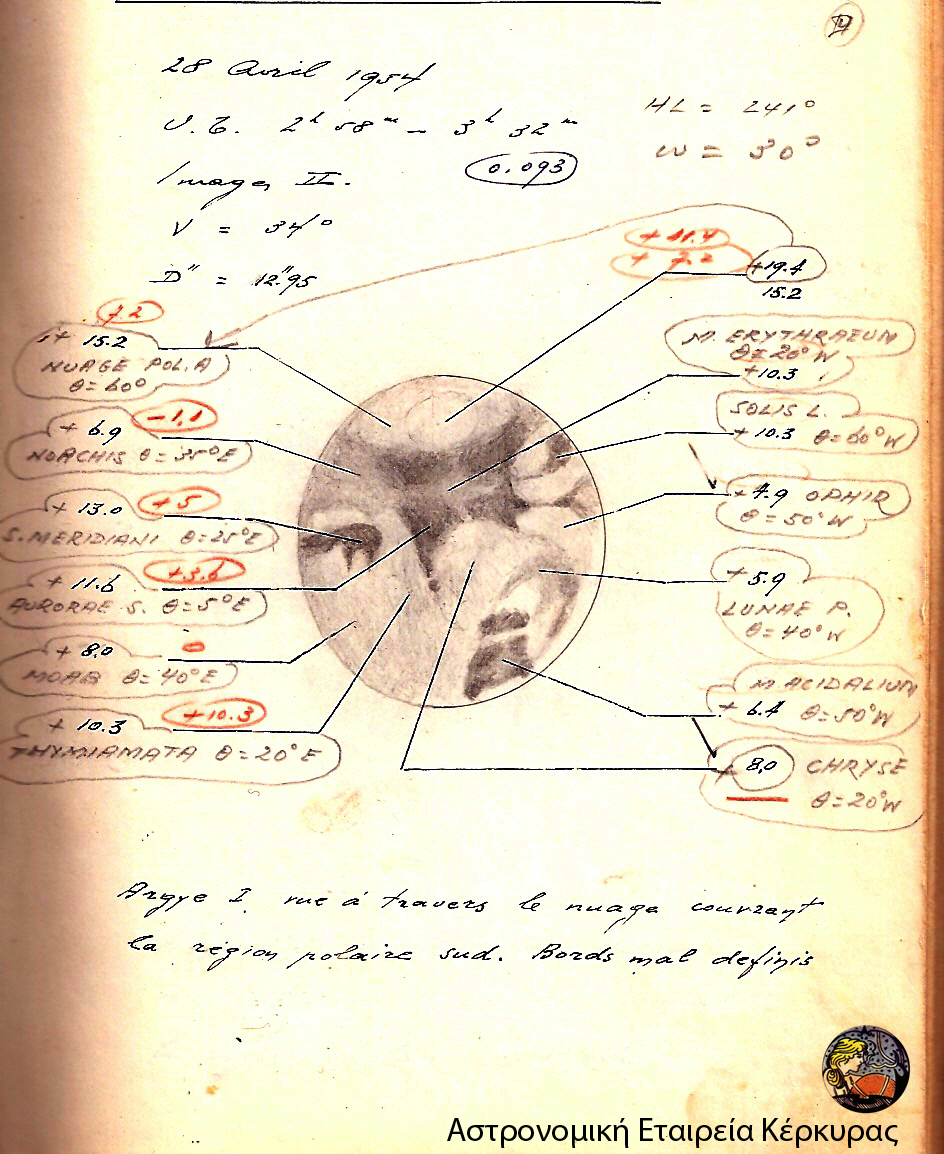 IV
28 Avril 1954
U.T. 2h 58m – 3h 32m
HL = 241°
ω = 30°
Images II.
0.093
V = 34°
D" = 12"95
+ 11.4
+ 7.2
+19.4
15.2
7.2
+ 15.2
NUAGE POL. A
θ = 60°
M. ERYTHRAEUM
θ = 20° W
+10.3
+ 6.9
-1.1
NOACHIS θ = 35° E
SOLIS L.
+ 10.3 θ = 60° W
+ 13.0
+5
S. MERIDIANI θ = 25° E
+ 4.9 OPHIR
θ = 50° W
+ 11.6
+3.6
AURORAE S. θ = 5° E
+ 5.9
LUNAE P.
θ = 40° W
+ 8.0
0
MOAB θ = 40° E
M. ACIDALIUM
+ 6.4 θ = 50° W
+ 10.3
+10.3
THYMIAMATA θ = 20° E
+ 8.0 CHRYSE
θ = 20° W
Argyre I vue à travers le nuage couvrant
la région polaire sud. Bords mal definis
Αστρονομική Εταιρεία Κέρκυρας